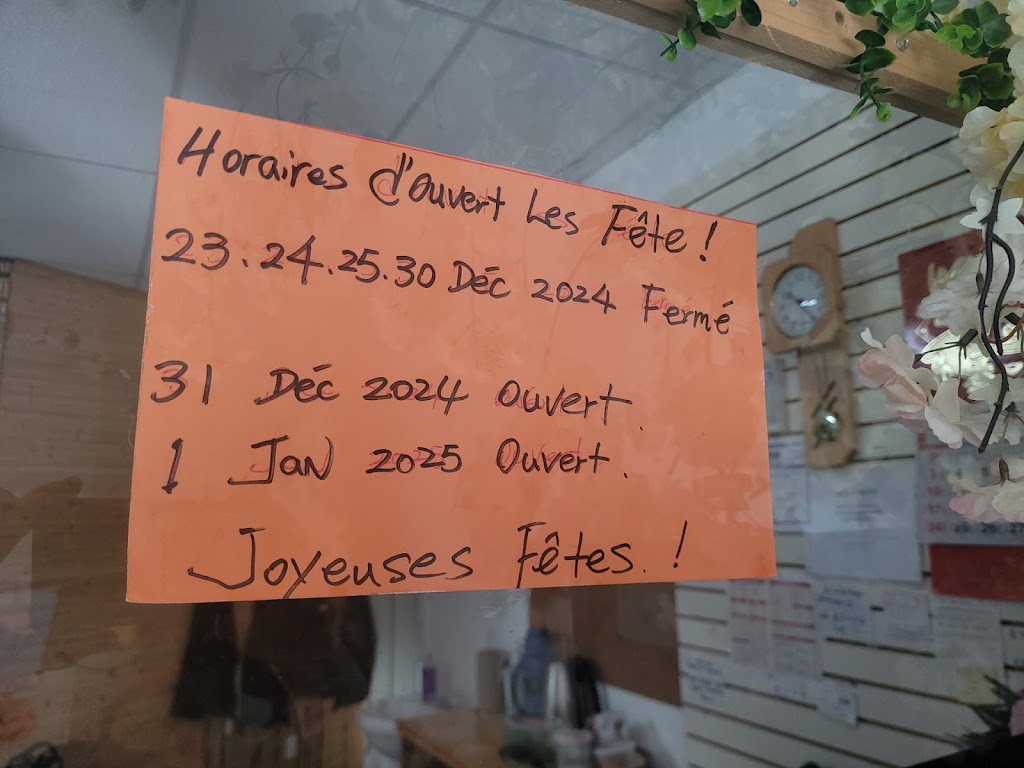 Horaires d'ouvert Les Fête !
23.24.25.30 Déc 2024 Fermé
31 Déc 2024 Ouvert.
1 Jan 2025 Ouvert.
Joyeuses Fêtes. !